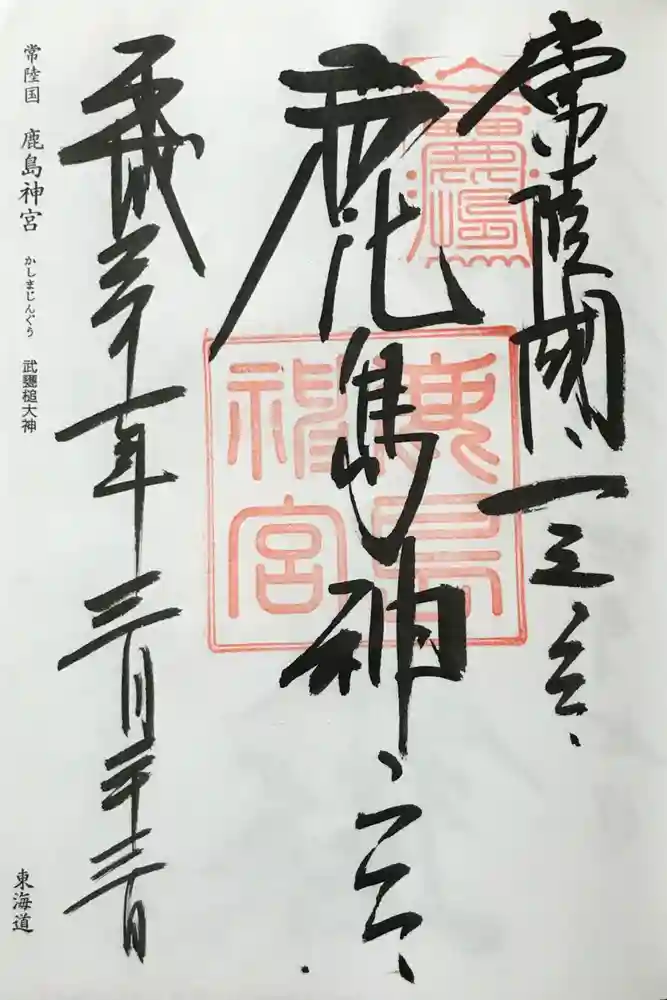 常陸國一之宮
鹿島神宮
平成三十一年三月二十三日
鹿島神宮
常陸国 鹿島神宮 かしまじんぐう 武甕槌大神
東海道